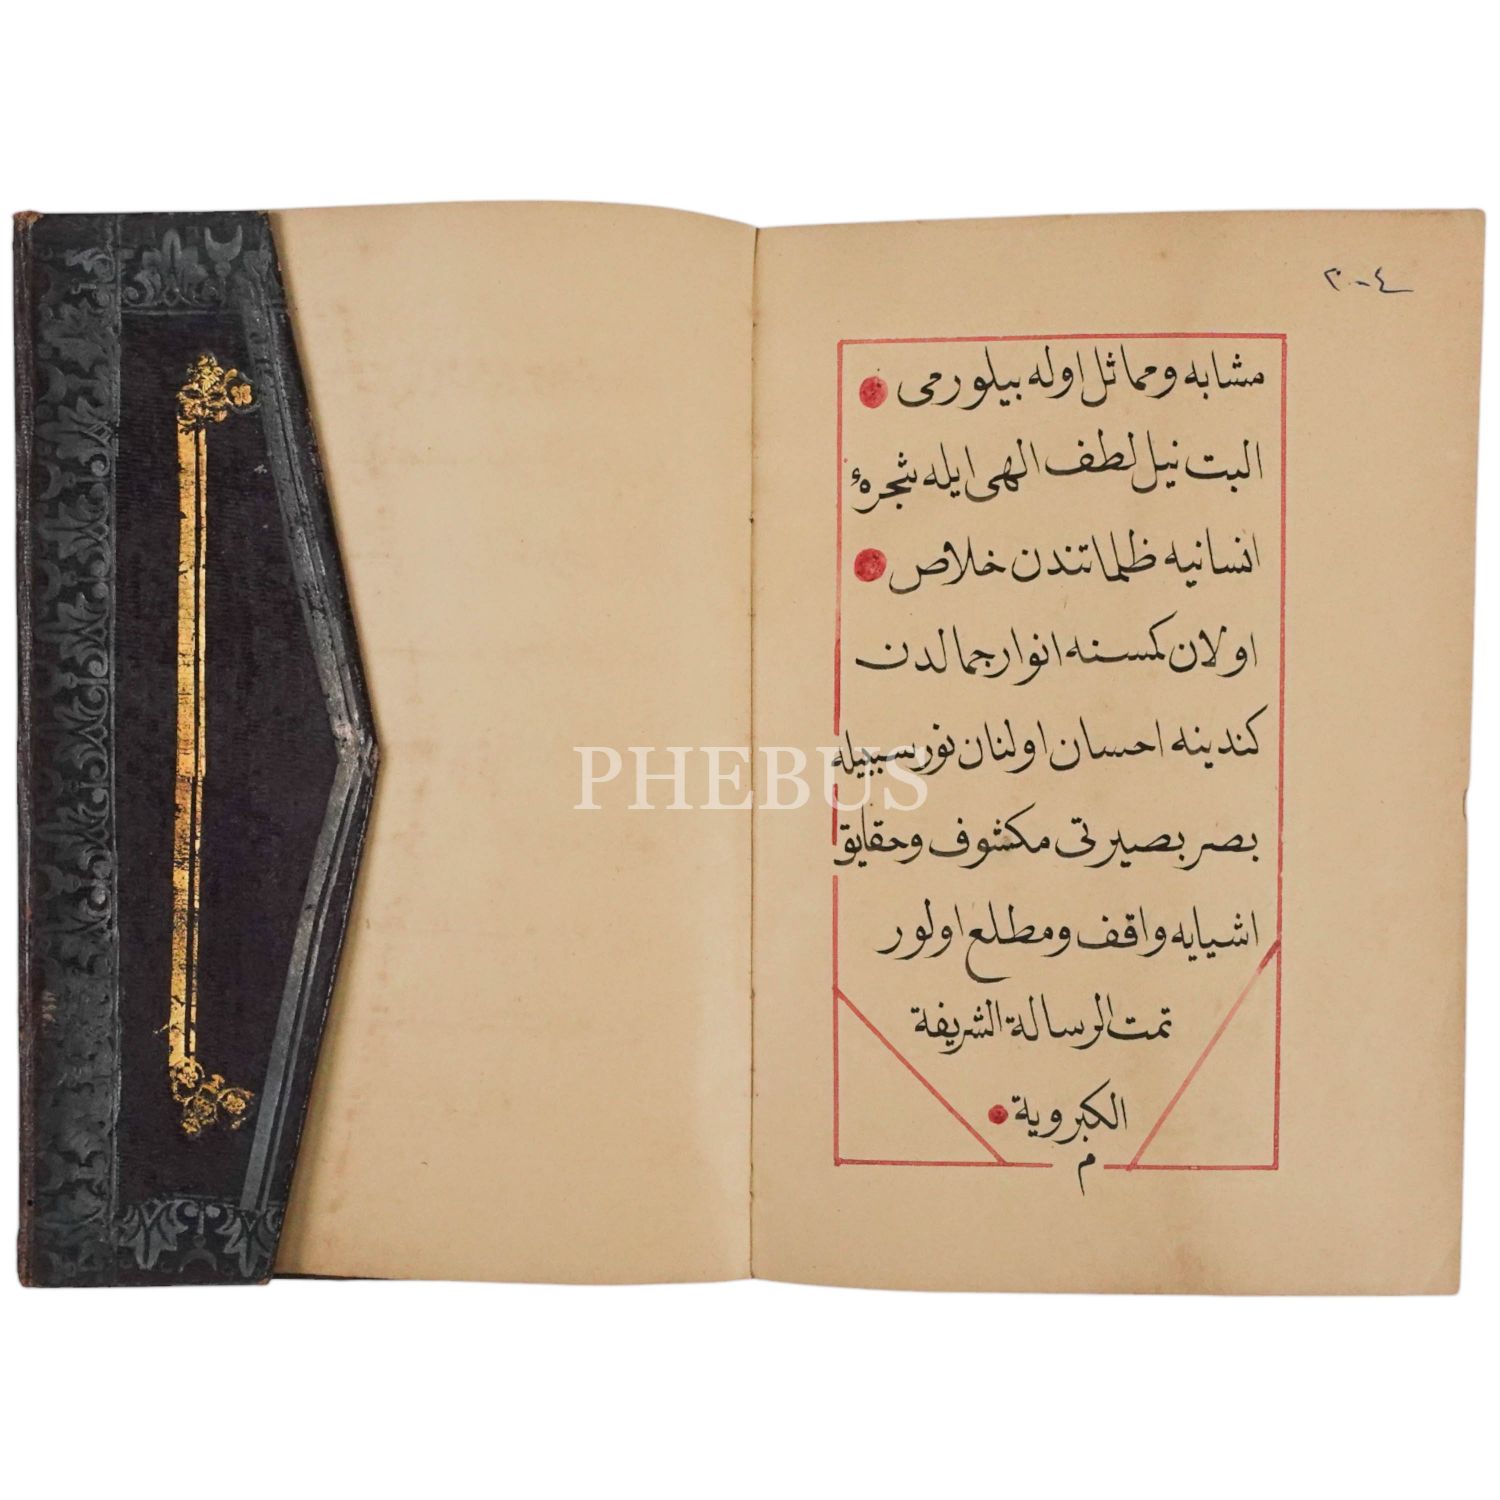 ٢٠٤
مشابه ومماثل اوله بيلورمى
البت نيل لطف الهى ايله شجرهٔ
انسانيه ظلماتندن خلاص
اولان كمسنه انوار جمالدن
كندينه احسان اولنان نور سببيله
بصر بصيرتى مكشوف وحقايق
اشيايه واقف ومطلع اولور
تمت الرسالة الشريفة
الكبروية
م
PHEBUS